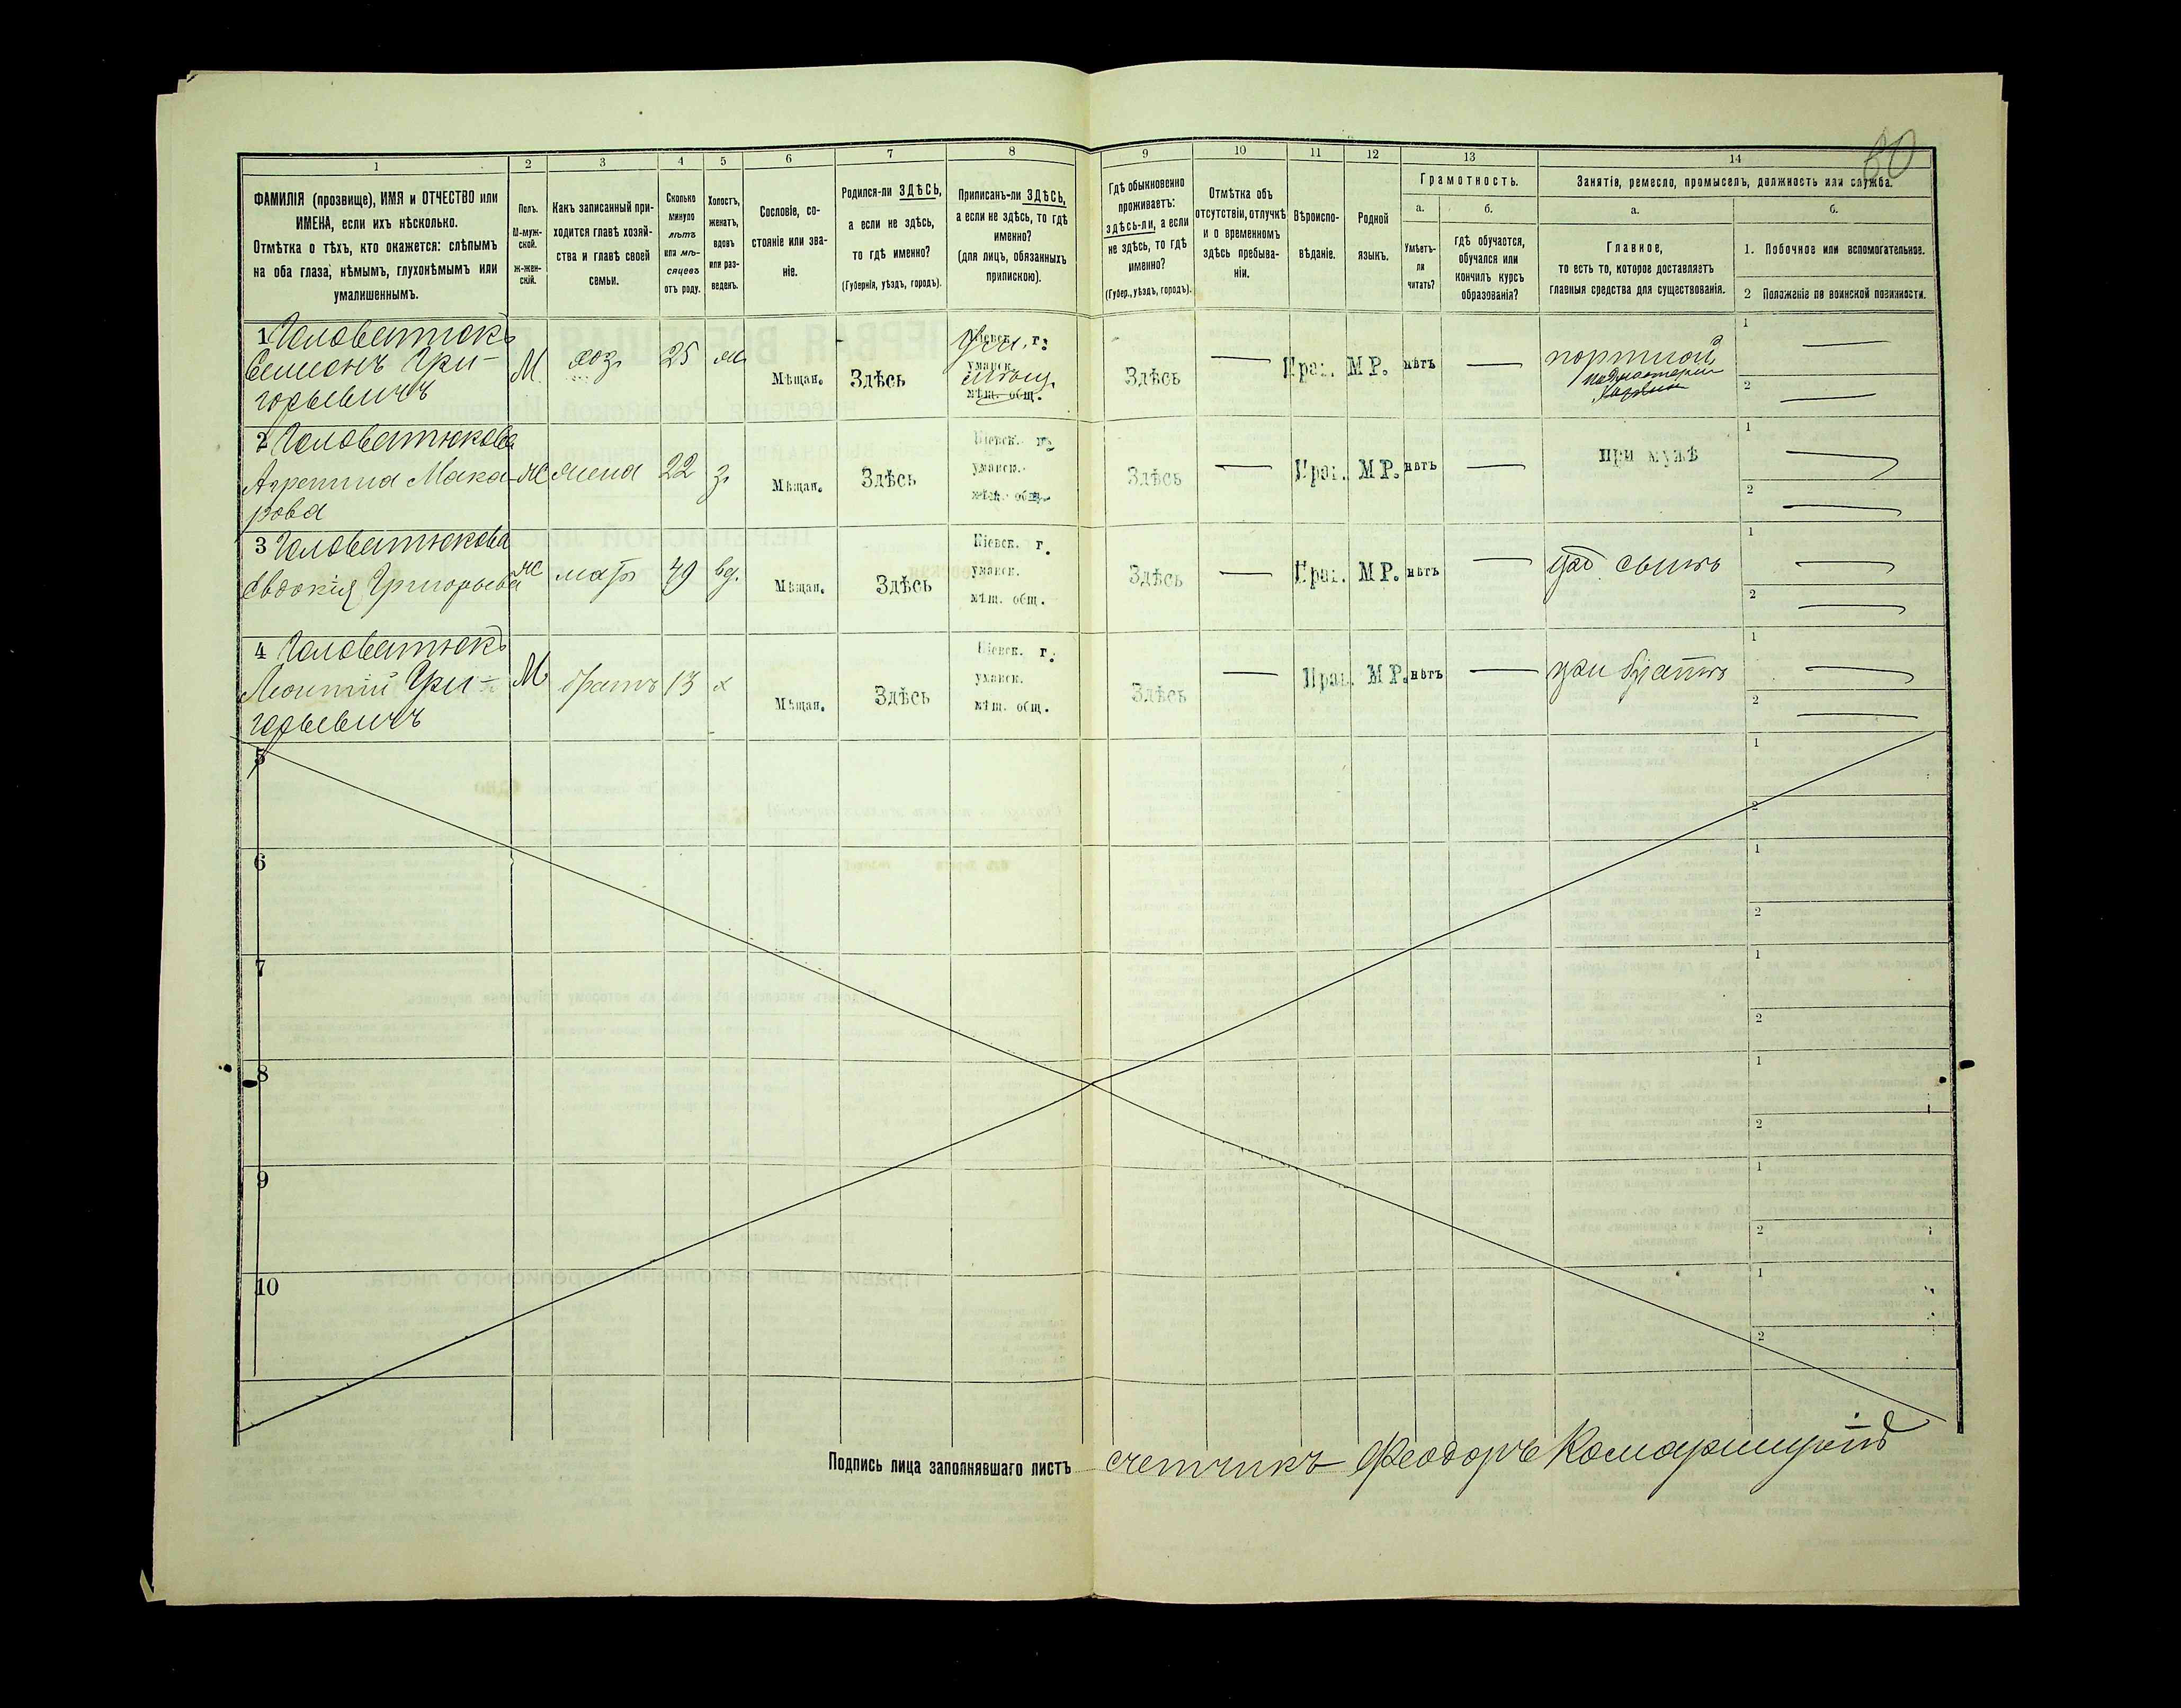 60
1 2 3 4 5 6 7 8 9 10 11 12 13 14
ФАМИЛІЯ (прозвище), ИМЯ и ОТЧЕСТВО или
ИМЕНА, если ихъ нѣсколько.
Отмѣтка о тѣхъ, кто окажется: слѣпымъ
на оба глаза, нѣмымъ, глухонѣмымъ или
умалишеннымъ.
Полъ.
М-муж-
ской.
Ж-жен-
скій.
Какъ записанный при-
ходится главѣ хозяй-
ства и главѣ своей
семьи.
Сколько
минуло
лѣтъ
или мѣ-
сяцевъ
отъ роду.
Холостъ,
женатъ,
вдовъ
или раз-
веденъ.
Сословіе, со-
стояніе или зва-
ніе.
Родился-ли ЗДѢСЬ,
а если не здѣсь,
то гдѣ именно?
(Губернія, уѣздъ, городъ).
Приписанъ-ли ЗДѢСЬ,
а если не здѣсь, то гдѣ
именно?
(для лицъ, обязанныхъ
припискою).
Гдѣ обыкновенно
проживаетъ:
здѣсь-ли, а если
не здѣсь, то гдѣ
именно?
(Губер., уѣздъ, городъ).
Отмѣтка объ
отсутствіи, отлучкѣ
и о временномъ
здѣсь пребыва-
ніи.
Вѣроиспо-
вѣданіе.
Родной
языкъ.
Грамотность.
а.
Умѣетъ-
ли
читать?
б.
гдѣ обучается,
обучался или
кончилъ курсъ
образованія?
Занятіе, ремесло, промыселъ, должность или служба.
а.
Главное,
то есть то, которое доставляетъ
главныя средства для существованія.
б.
1. Побочное или вспомогательное.
2 Положеніе по воинской повинности.
1 Головатюкъ
Семенъ Гри-
горьевичъ
М хоз. 25 ж
Мѣщан. Здѣсь
Кіевск. г.
уманск.
мѣщ. общ.
Здѣсь — Прав. М Р. нѣтъ — портной
1 —
2 —
2 Головатюкова
Агрепина Мака-
рова
Ж жена 22 з.
Мѣщан. Здѣсь
Кіевск. г.
уманск.
мѣщ. общ.
Здѣсь — Прав. М Р. нѣтъ — при мужѣ
1 —
2 —
3 Головатюкова
Евдокія Григорьева
ж мать 49 вд.
Мѣщан. Здѣсь
Кіевск. г.
уманск.
мѣщ. общ.
Здѣсь — Прав. М Р. нѣтъ — при сынѣ
1 —
2 —
4 Головатюкъ
Леонтій Гри-
горьевичъ
М братъ 13 х
Мѣщан. Здѣсь
Кіевск. г.
уманск.
мѣщ. общ.
Здѣсь — Прав. М Р. нѣтъ — при братѣ
1 —
2 —
5
1
2
6
1
2
7
1
2
8
1
2
9
1
2
10
1
2
Подпись лица заполнявшаго листъ счетчикъ Феодоръ Комарницкій